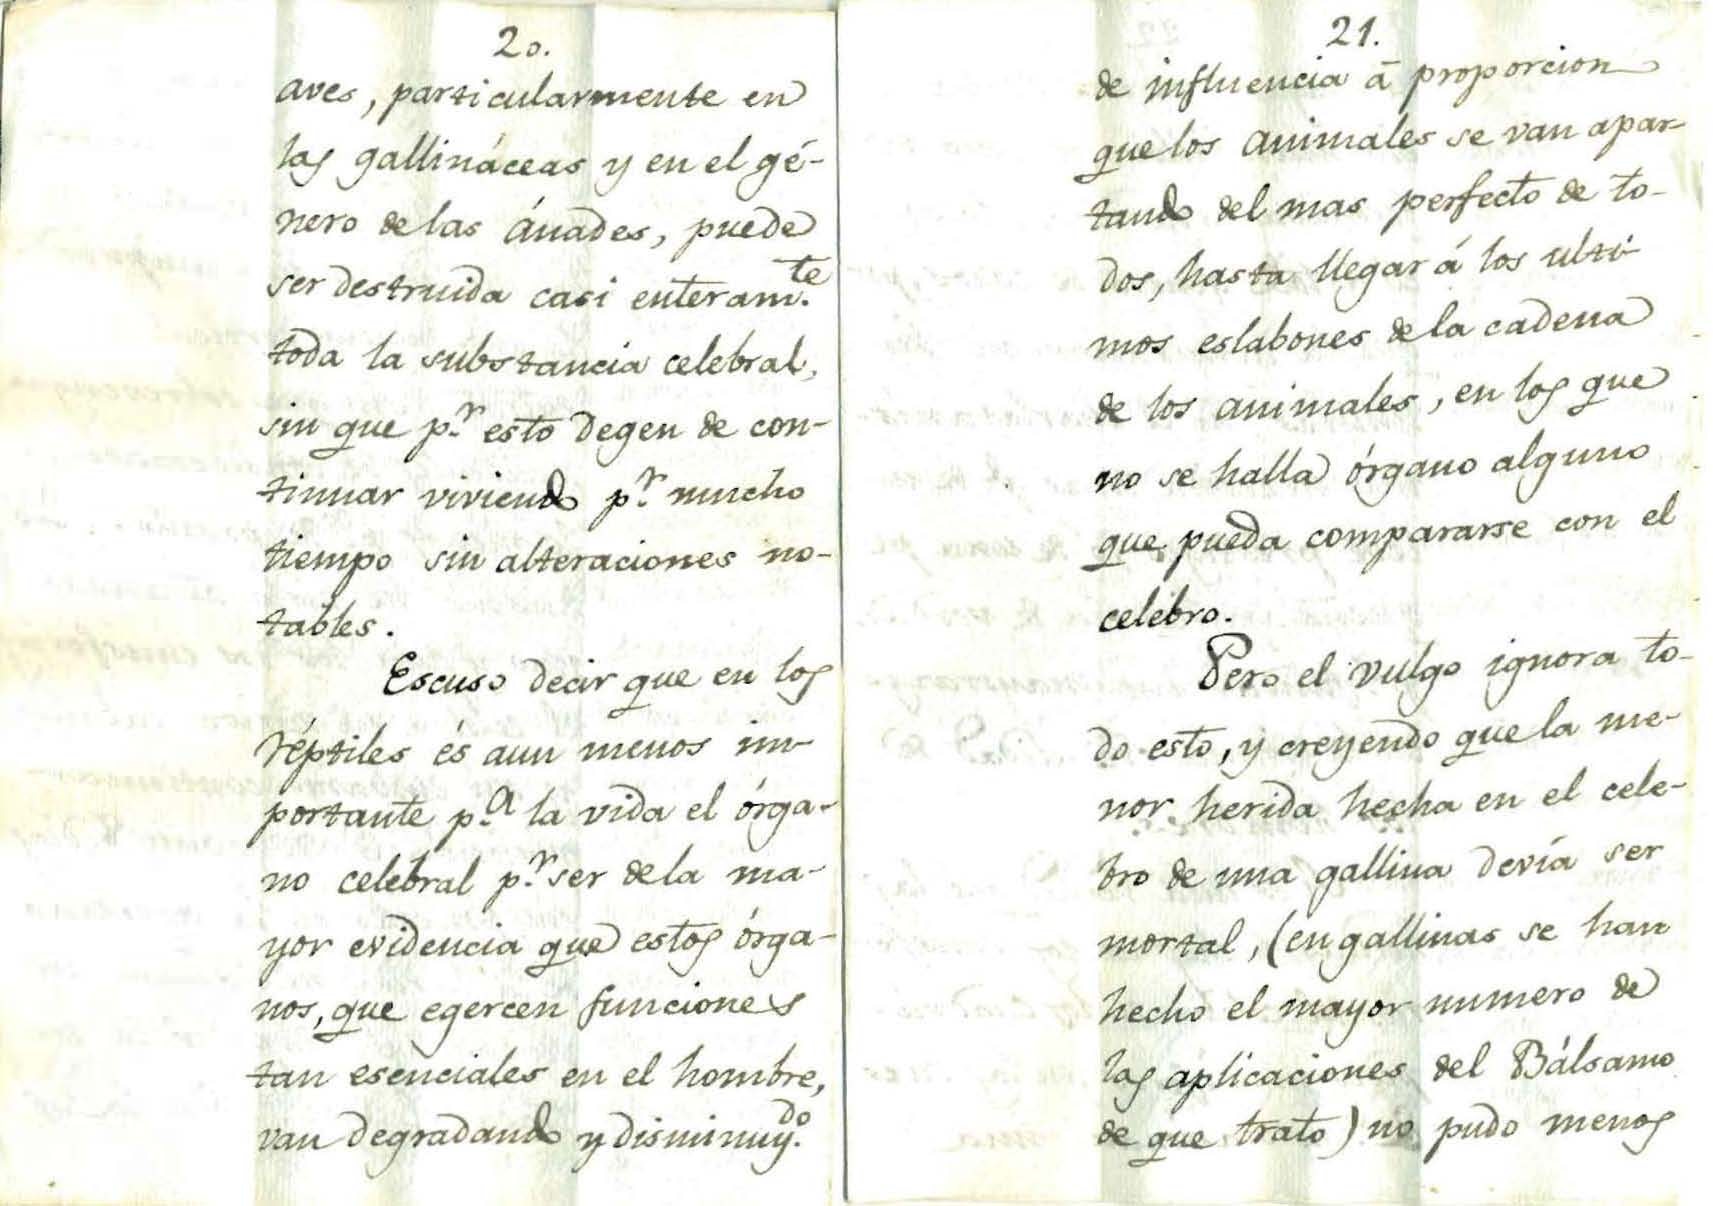 20.
aves, particularmente en
las gallináceas y en el gé-
nero de las ánades, puede
ser destruida casi enteram.te
toda la substancia celebral,
sin que p.r esto degen de con-
tinuar viviendo p.r mucho
tiempo sin alteraciones no-
tables.
Escuso decir que en los
réptiles és aun menos im-
portante p.a la vida el órga-
no celebral p.r ser de la ma-
yor evidencia que estos órga-
nos, que egercen funciones
tan esenciales en el hombre,
van degradando y disminuy.do
21.
de influencia á proporcion
que los animales se van apar-
tando del mas perfecto de to-
dos, hasta llegar á los ulti-
mos eslabones de la cadena
de los animales, en los que
no se halla órgano alguno
que pueda compararse con el
celebro.
Pero el vulgo ignora to-
do esto, y creyendo que la me-
nor herida hecha en el cele-
bro de una gallina devía ser
mortal, (en gallinas se han
hecho el mayor numero de
las aplicaciones del Bálsamo
de que trato) no pudo menos